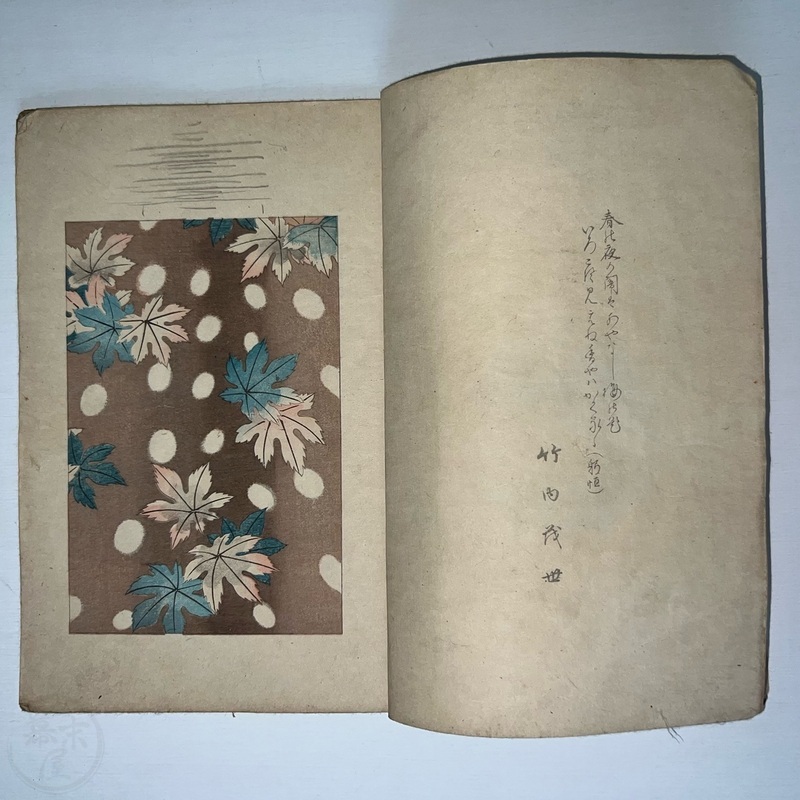 春の夜の闇はあやなし梅の花
いろこそ見えね香やハかくるゝ(躬恒)
竹内茂世
幕末屋